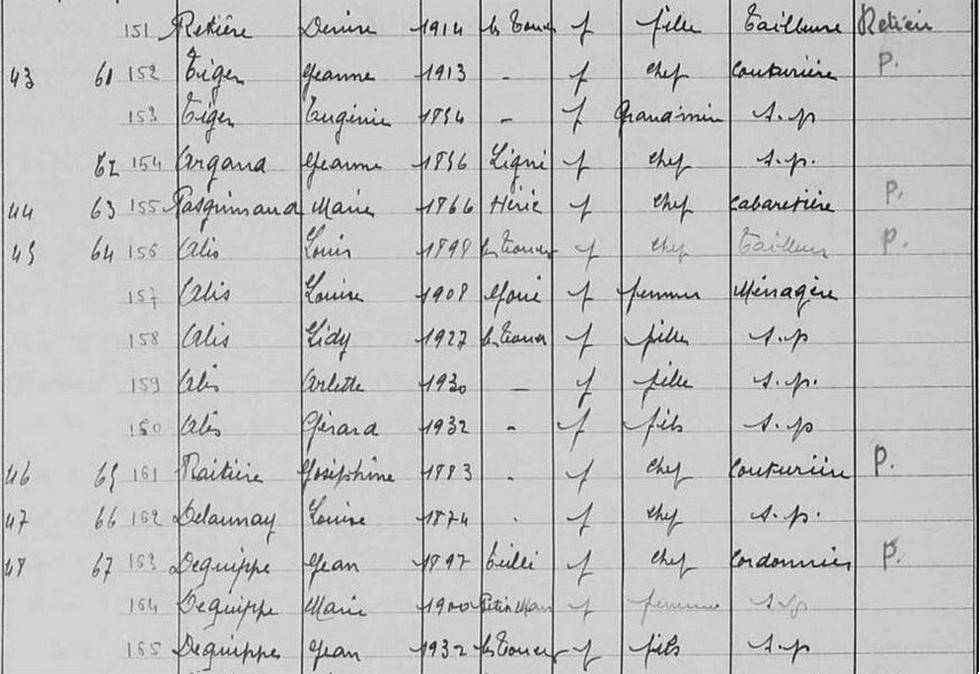 151 Retière Denise 1914 les Touches f fille Tailleuse Retière
43 61 152 Tiger Jeanne 1913 - f chef Couturière P.
153 Tiger Eugénie 1854 - f Grand'mère s.p
62 154 Argand Jeanne 1856 Ligné f chef s.p.
44 63 155 Marie 1866 Héric f chef Cabaretière P.
45 64 156 Alis Louis 1898 les Touches f chef Tailleur P.
157 Alis Louise 1908 f femme Ménagère
158 Alis Lidy 1927 les Touches f fille s.p
159 Alis Arlette 1930 - f fille s.p.
160 Alis Gérard 1932 - f fils s.p
46 65 161 Raitière Joséphine 1883 - f chef Couturière P.
47 66 162 Delaunay Louise 1874 - f chef s.p.
48 67 163 Dequippe Jean 1897 f chef Cordonnier P.
164 Dequippe Marie 1900 Petit Mars f femme s.p
165 Dequippe Jean 1932 les Touches f fils s.p